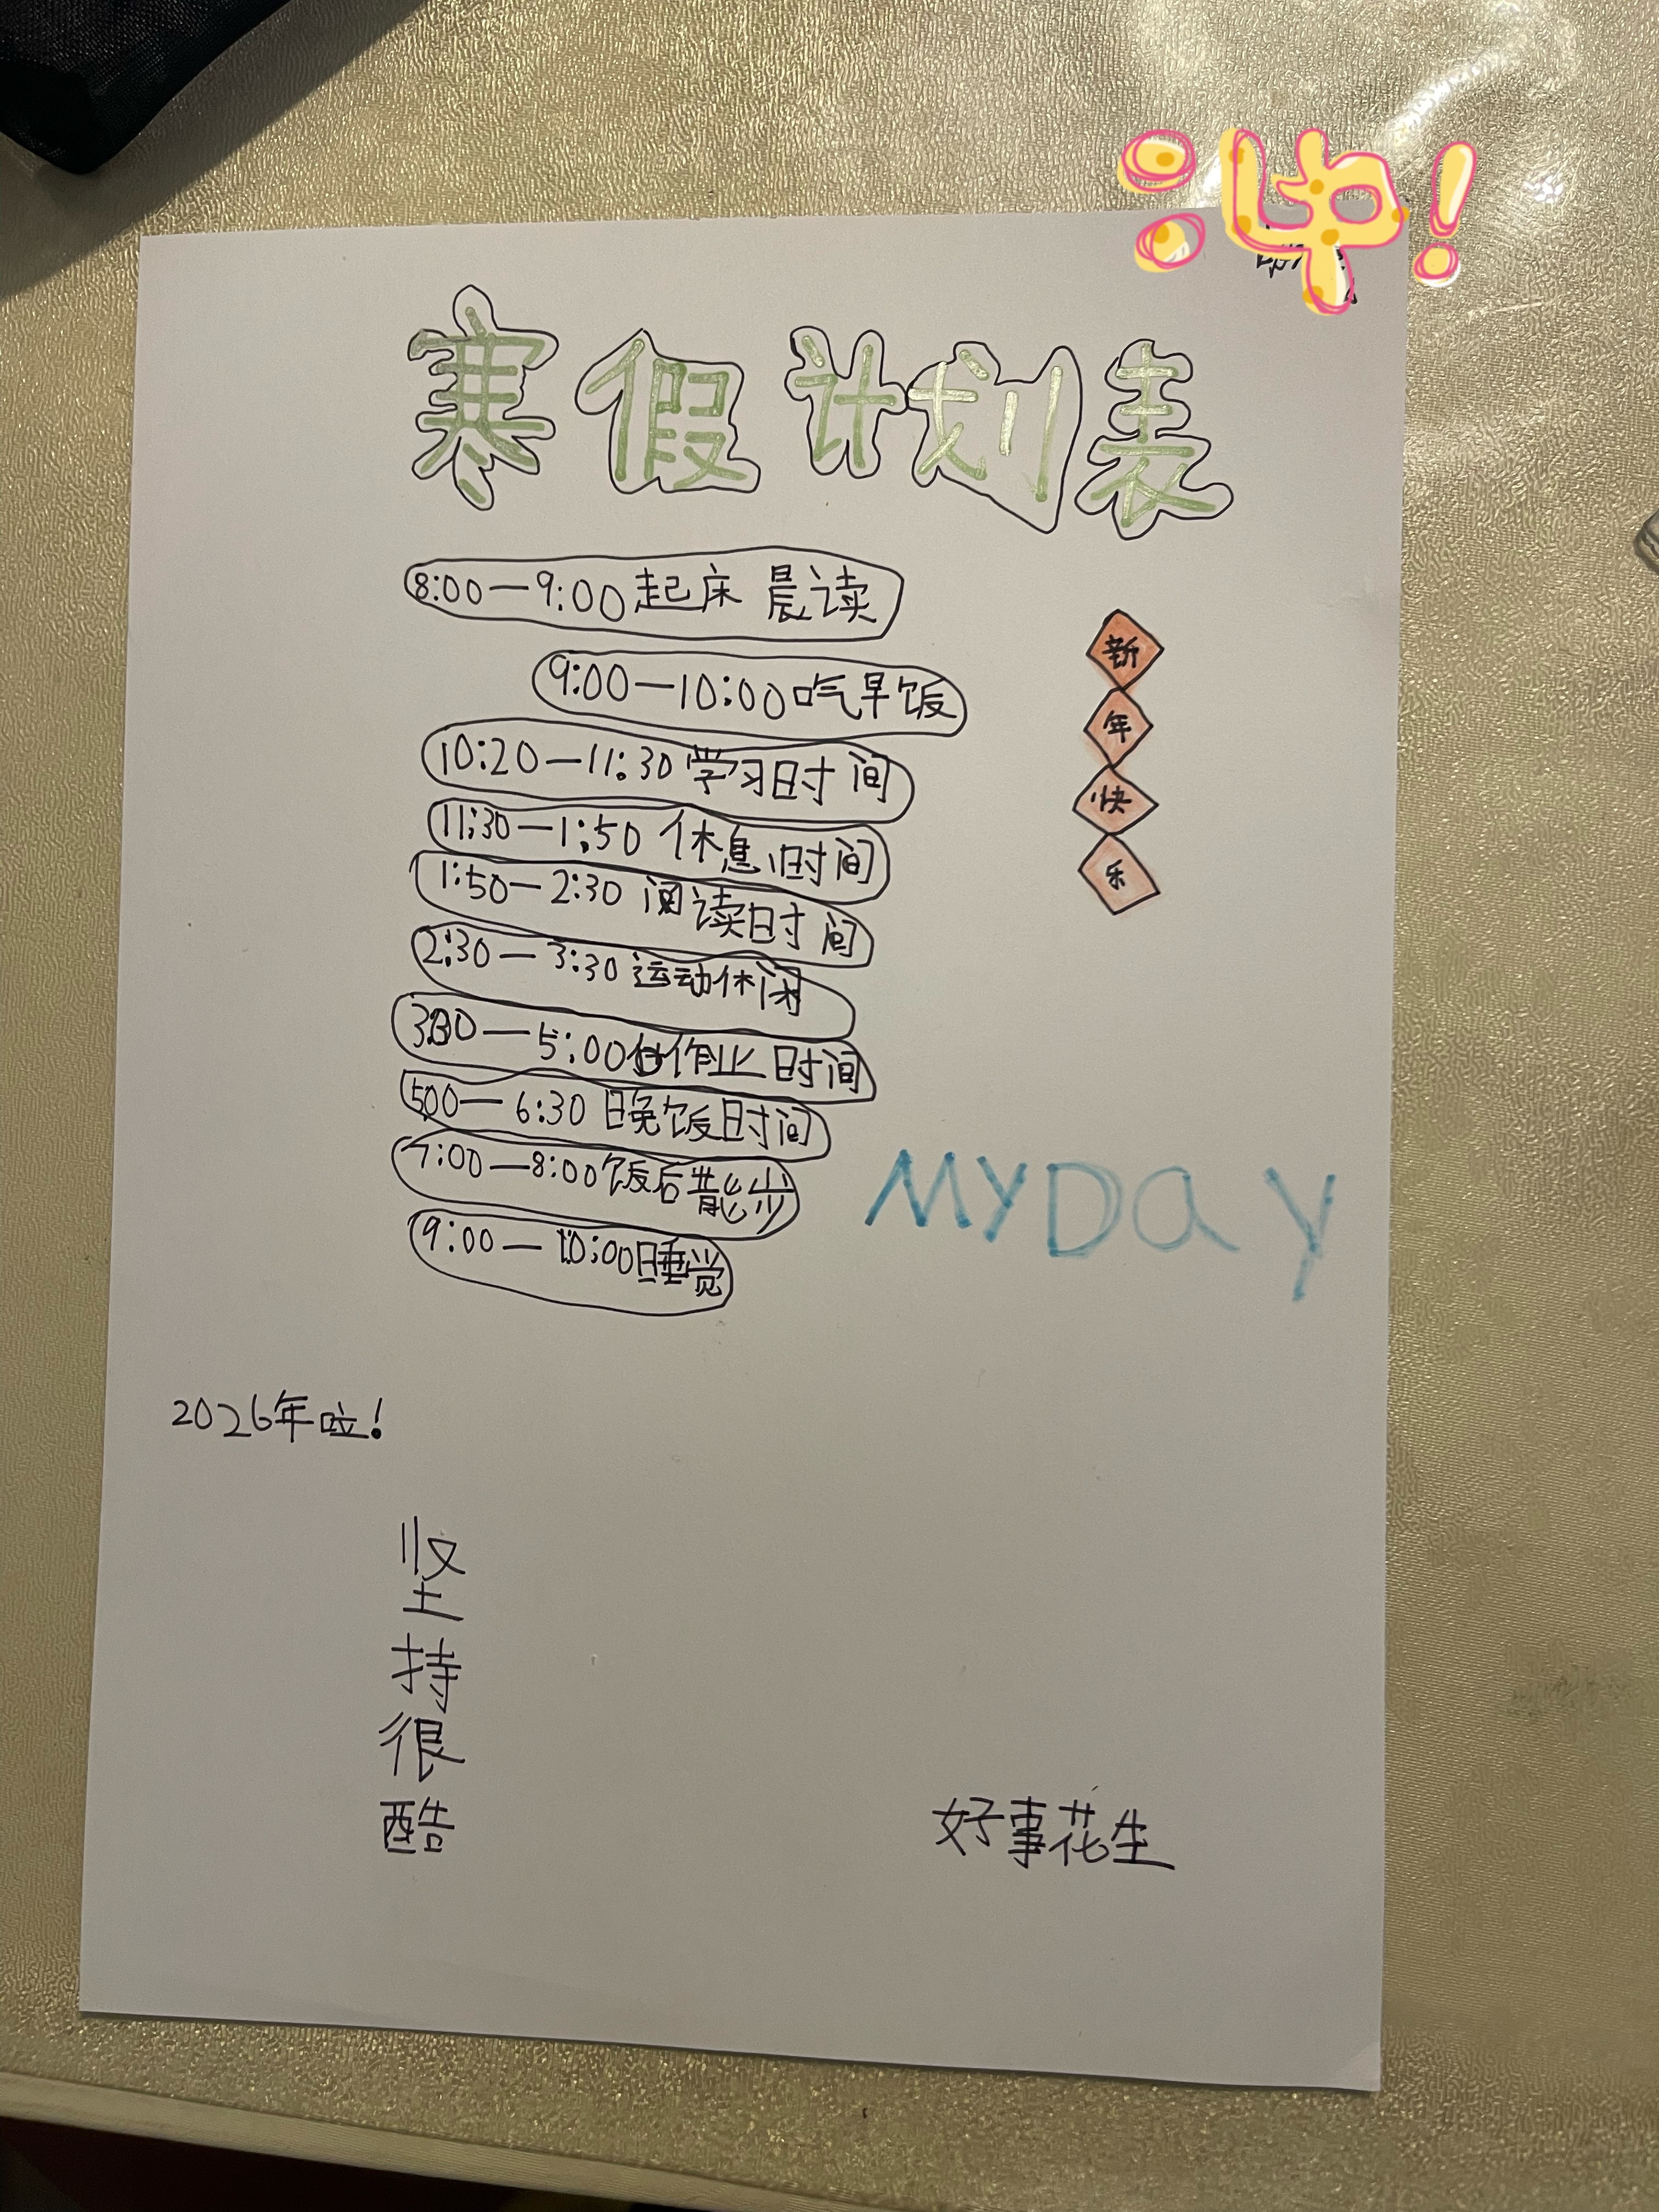 冲!
寒假计划表
8:00—9:00起床 晨读
9:00—10:00吃早饭
10:20—11:30学习时间
11:30—1:50 休息时间
1:50—2:30 阅读时间
2:30—3:30运动休闲
3:30—5:00做作业时间
5:00—6:30 晚饭时间
7:00—8:00饭后散步
9:00—10:00睡觉
新
年
快
乐
MYDay
2026年啦!
坚
持
很
酷
好事花生